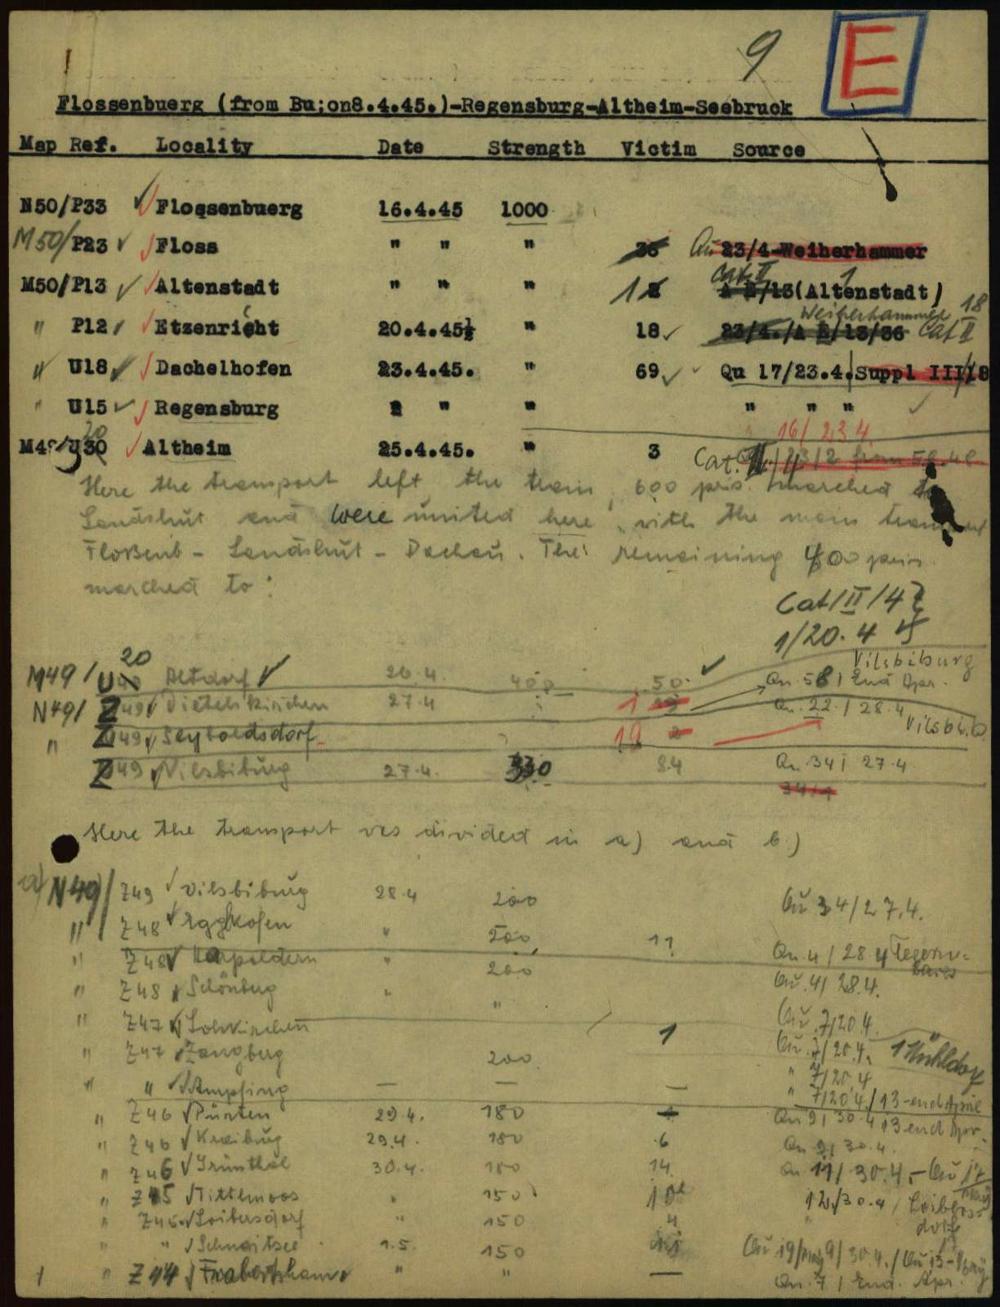 9 E
Flossenbuerg (from Bu;on8.4.45.)-Regensburg-Altheim-Seebruck
Map Ref. Locality Date Strength Victim Source
N50/P33 Flossenbuerg 16.4.45 1000
M50/P23 Floss " " " 23/4-Weiherhammer
M50/P13 Altenstadt " " " 1 Cat. II 1 (Altenstadt)
" P12 Etzenricht 20.4.45 " 18 Weiherhammer 18 Cat II
" U18 Dachelhofen 23.4.45. " 69 Qu 17/23.4. Suppl III/8
" U15 Regensburg " " " " " "
16/23 4.
M49/U20 Altheim 25.4.45. " 3 Cat. II/4
Here the transport left the train, 600 pris. marched to
Landshut and were united here with the main transport
Flossenb - Landshut - Dachau. The remaining 400 pris.
marched to:
Cat/II/42
1/20.4 45
M49/ U20 Altdorf 26.4. 400 50 Vilsbiburg
Qu 58/ End Apr.
N49/ Z49 Dietelskirchen 27.4 1 Qu. 22/28.4
" Z49 Seyboldsdorf 19 Vilsbib.
Z49 Vilsbiburg 27.4. 330 84 Qu 34/ 27.4
Here the transport ves divided in a) and b.)
a) N49/ Z49 Vilsbiburg 28.4 200 Qu 34/27.4.
" Z48 Egglkofen " 200 11 Qu 4/28.4
" Z48 " 200 Qu. 4/ 28.4.
" Z48 Schönberg " "
" Z47 Lohkirchen 1 Qu. 7/20.4.
" Z47 Zangberg 200 Qu. 7/20.4. 1 Mühldorf
" " Ampfing — — — " 7/20.4
7/20.4./13-end April
" Z46 Pürten 29.4. 180 Qu 9/ 30.4 13 end Apr.
" Z46 Kraiburg 29.4. 180 6 Qu 9/ 30.4.
" Z46 Grünthal 30.4. 180 14 Qu 11/30.4.-
" Z45 Mittlmoos " 150 12/30.4/
" Z45 Loibersdorf " 150 4
" " Schnaitsee 1.5. 150
" Z44 Frabertsham " " — Qu. 7/ End. Apr.